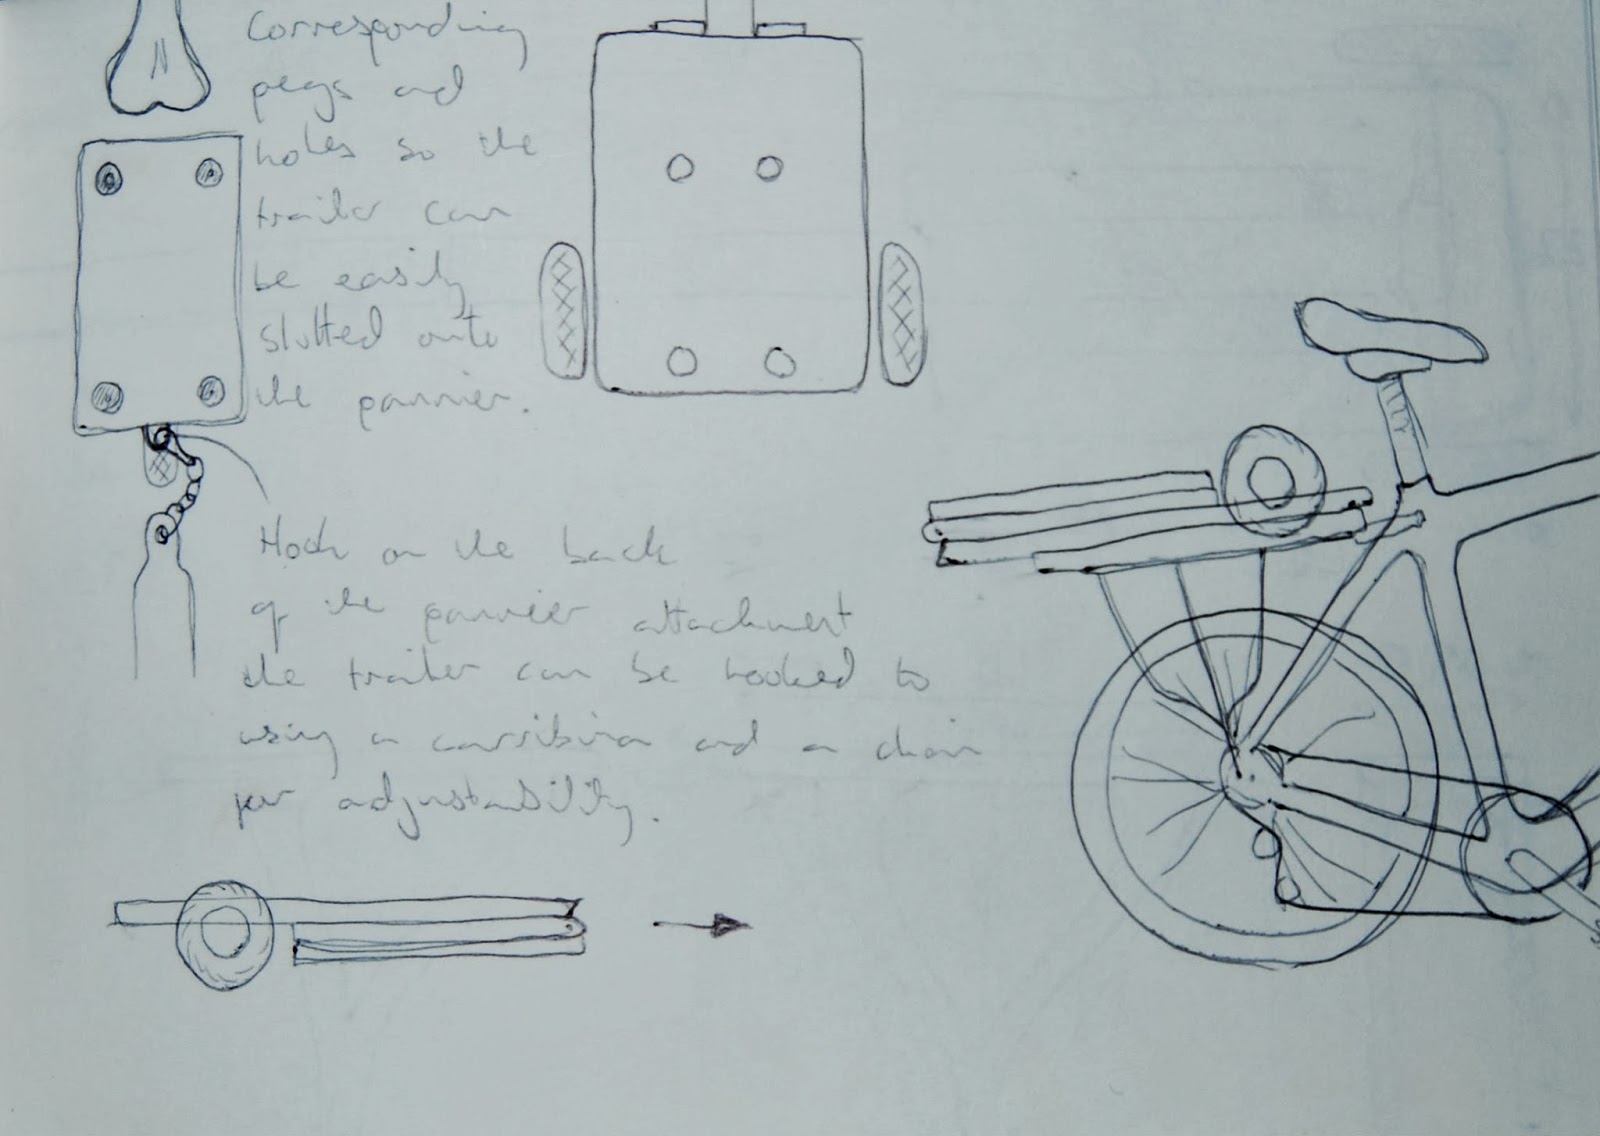 Corresponding
pegs and
holes so the
trailer can
be easily
slotted onto
the pannier.
Hook on the back
of the pannier attachment
the trailer can be hooked to
using a carribina and a chain
for adjustability.